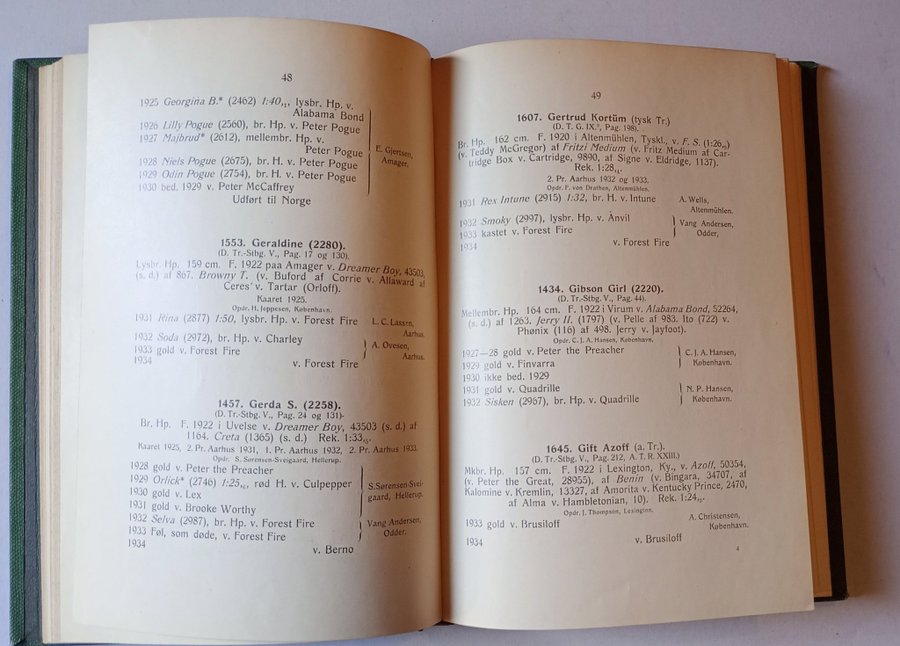 48
1925 Georgina B.* (2462) 1:40,₃, lysbr. Hp. v.
Alabama Bond
1926 Lilly Pogue (2560), br. Hp. v. Peter Pogue
1927 Majbrud* (2612), mellembr. Hp. v.
Peter Pogue
1928 Niels Pogue (2675), br. H. v. Peter Pogue
1929 Odin Pogue (2754), br. H. v. Peter Pogue
1930 bed. 1929 v. Peter McCaffrey
Udført til Norge
E. Gjertsen,
Amager.
1553. Geraldine (2280).
(D. Tr.-Stbg. V., Pag. 17 og 130).
Lysbr. Hp. 159 cm. F. 1922 paa Amager v. Dreamer Boy, 43503,
(s. d.) af 867. Browny T. (v. Buford af Corrie v. Allaward af
Ceres v. Tartar (Orloff).
Kaaret 1925.
Opdr. H. Jeppesen, København.
1931 Rina (2877) 1:50, lysbr. Hp. v. Forest Fire
L. C. Lassen,
Aarhus.
1932 Soda (2972), br. Hp. v. Charley
1933 gold v. Forest Fire
1934 v. Forest Fire
A. Ovesen,
Aarhus.
1457. Gerda S. (2258).
(D. Tr.-Stbg. V., Pag. 24 og 131).
Br. Hp. F. 1922 i Uvelse v. Dreamer Boy, 43503 (s. d.) af
1164. Creta (1365) (s. d.) Rek. 1:33,₅.
Kaaret 1925, 2. Pr. Aarhus 1931, 1. Pr. Aarhus 1932, 2. Pr. Aarhus 1933.
Opdr. S. Sørensen-Sveigaard, Hellerup.
1928 gold v. Peter the Preacher
1929 Orlick* (2746) 1:25, rød H. v. Culpepper
1930 gold v. Lex
1931 gold v. Brooke Worthy
S.Sørensen-Svei-
gaard, Hellerup.
1932 Selva (2987), br. Hp. v. Forest Fire
1933 Føl, som døde, v. Forest Fire
1934 v. Berno
Vang Andersen,
Odder.
49
1607. Gertrud Kortüm (tysk Tr.)
(D. T. G. IX.², Pag. 198).
Br. Hp. 162 cm. F. 1920 i Altenmühlen, Tyskl., v. F. S. (1:26)
(v. Teddy McGregor) af Fritzi Medium (v. Fritz Medium af Car-
tridge Box v. Cartridge, 9890, af Signe v. Eldridge, 1137).
Rek. 1:28.
2. Pr. Aarhus 1932 og 1933.
Opdr. F. von Drathen, Altenmühlen.
1931 Rex Intune (2915) 1:32, br. H. v. Intune
A. Wells,
Altenmühlen.
1932 Smoky (2997), lysbr. Hp. v. Anvil
1933 kastet v. Forest Fire
1934 v. Forest Fire
Vang Andersen,
Odder,
1434. Gibson Girl (2220).
(D. Tr.-Stbg. V., Pag. 44).
Mellembr. Hp. 164 cm. F. 1922 i Virum v. Alabama Bond, 52264,
(s. d.) af 1263. Jerry II. (1797) (v. Pelle af 983. Ito (722) v.
Phønix (116) af 498. Jerry v. Jayfoot).
Opdr. C. J. A. Hansen, København.
1927—28 gold v. Peter the Preacher
1929 gold v. Finvarra
1930 ikke bed. 1929
C. J. A. Hansen,
København.
1931 gold v. Quadrille
1932 Sisken (2967), br. Hp. v. Quadrille
N. P. Hansen,
København.
1645. Gift Azoff (a. Tr.).
(D. Tr.-Stbg. V., Pag. 212, A. T. R. XXIII.)
Mkbr. Hp. 157 cm. F. 1922 i Lexington, Ky., v. Azoff, 50354,
(v. Peter the Great, 28955), af Benin (v. Bingara, 34707, af
Kalomine v. Kremlin, 13327, af Amorita v. Kentucky Prince, 2470,
af Alma v. Hambletonian, 10). Rek. 1:24.
Opdr. J. Thompson, Lexington.
1933 gold v. Brusiloff
A. Christensen,
København.
1934 v. Brusiloff
4